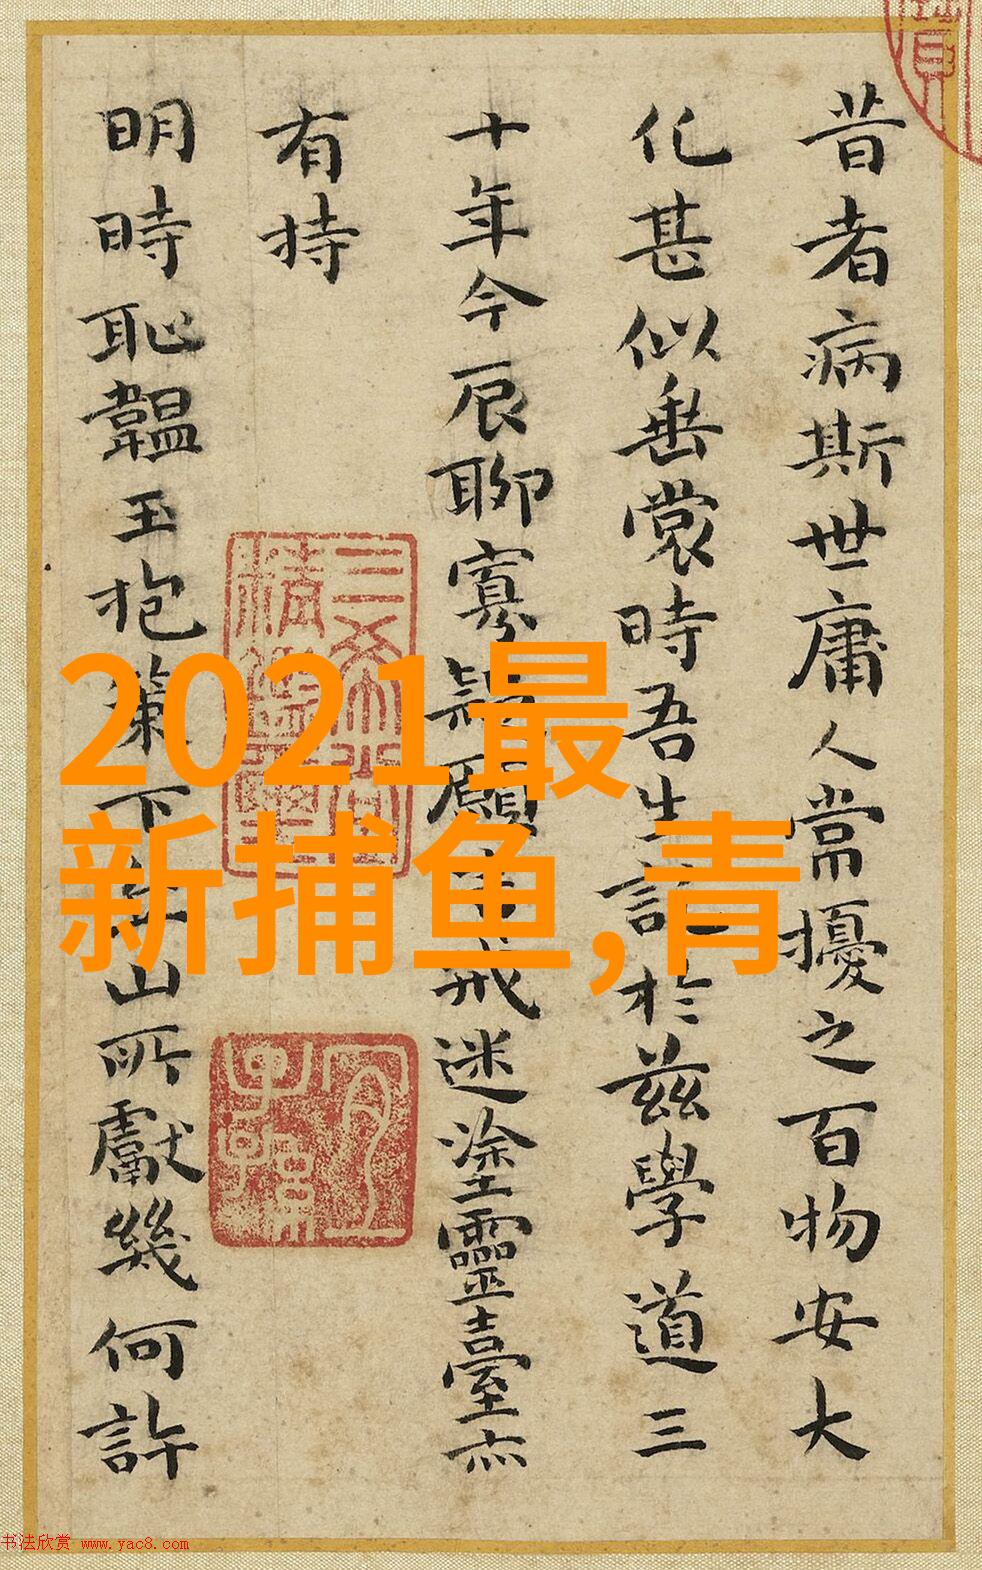 昔者病斯世庸人常擾之百物安大
化甚似垂裳時吾生 於茲學道三
十年今辰聊寡 願 戒迷塗靈臺亦
有持
明時恥韞玉抱 下 山所獻幾何許
2021最
新捕鱼,青
书法欣赏 www.yac8.com